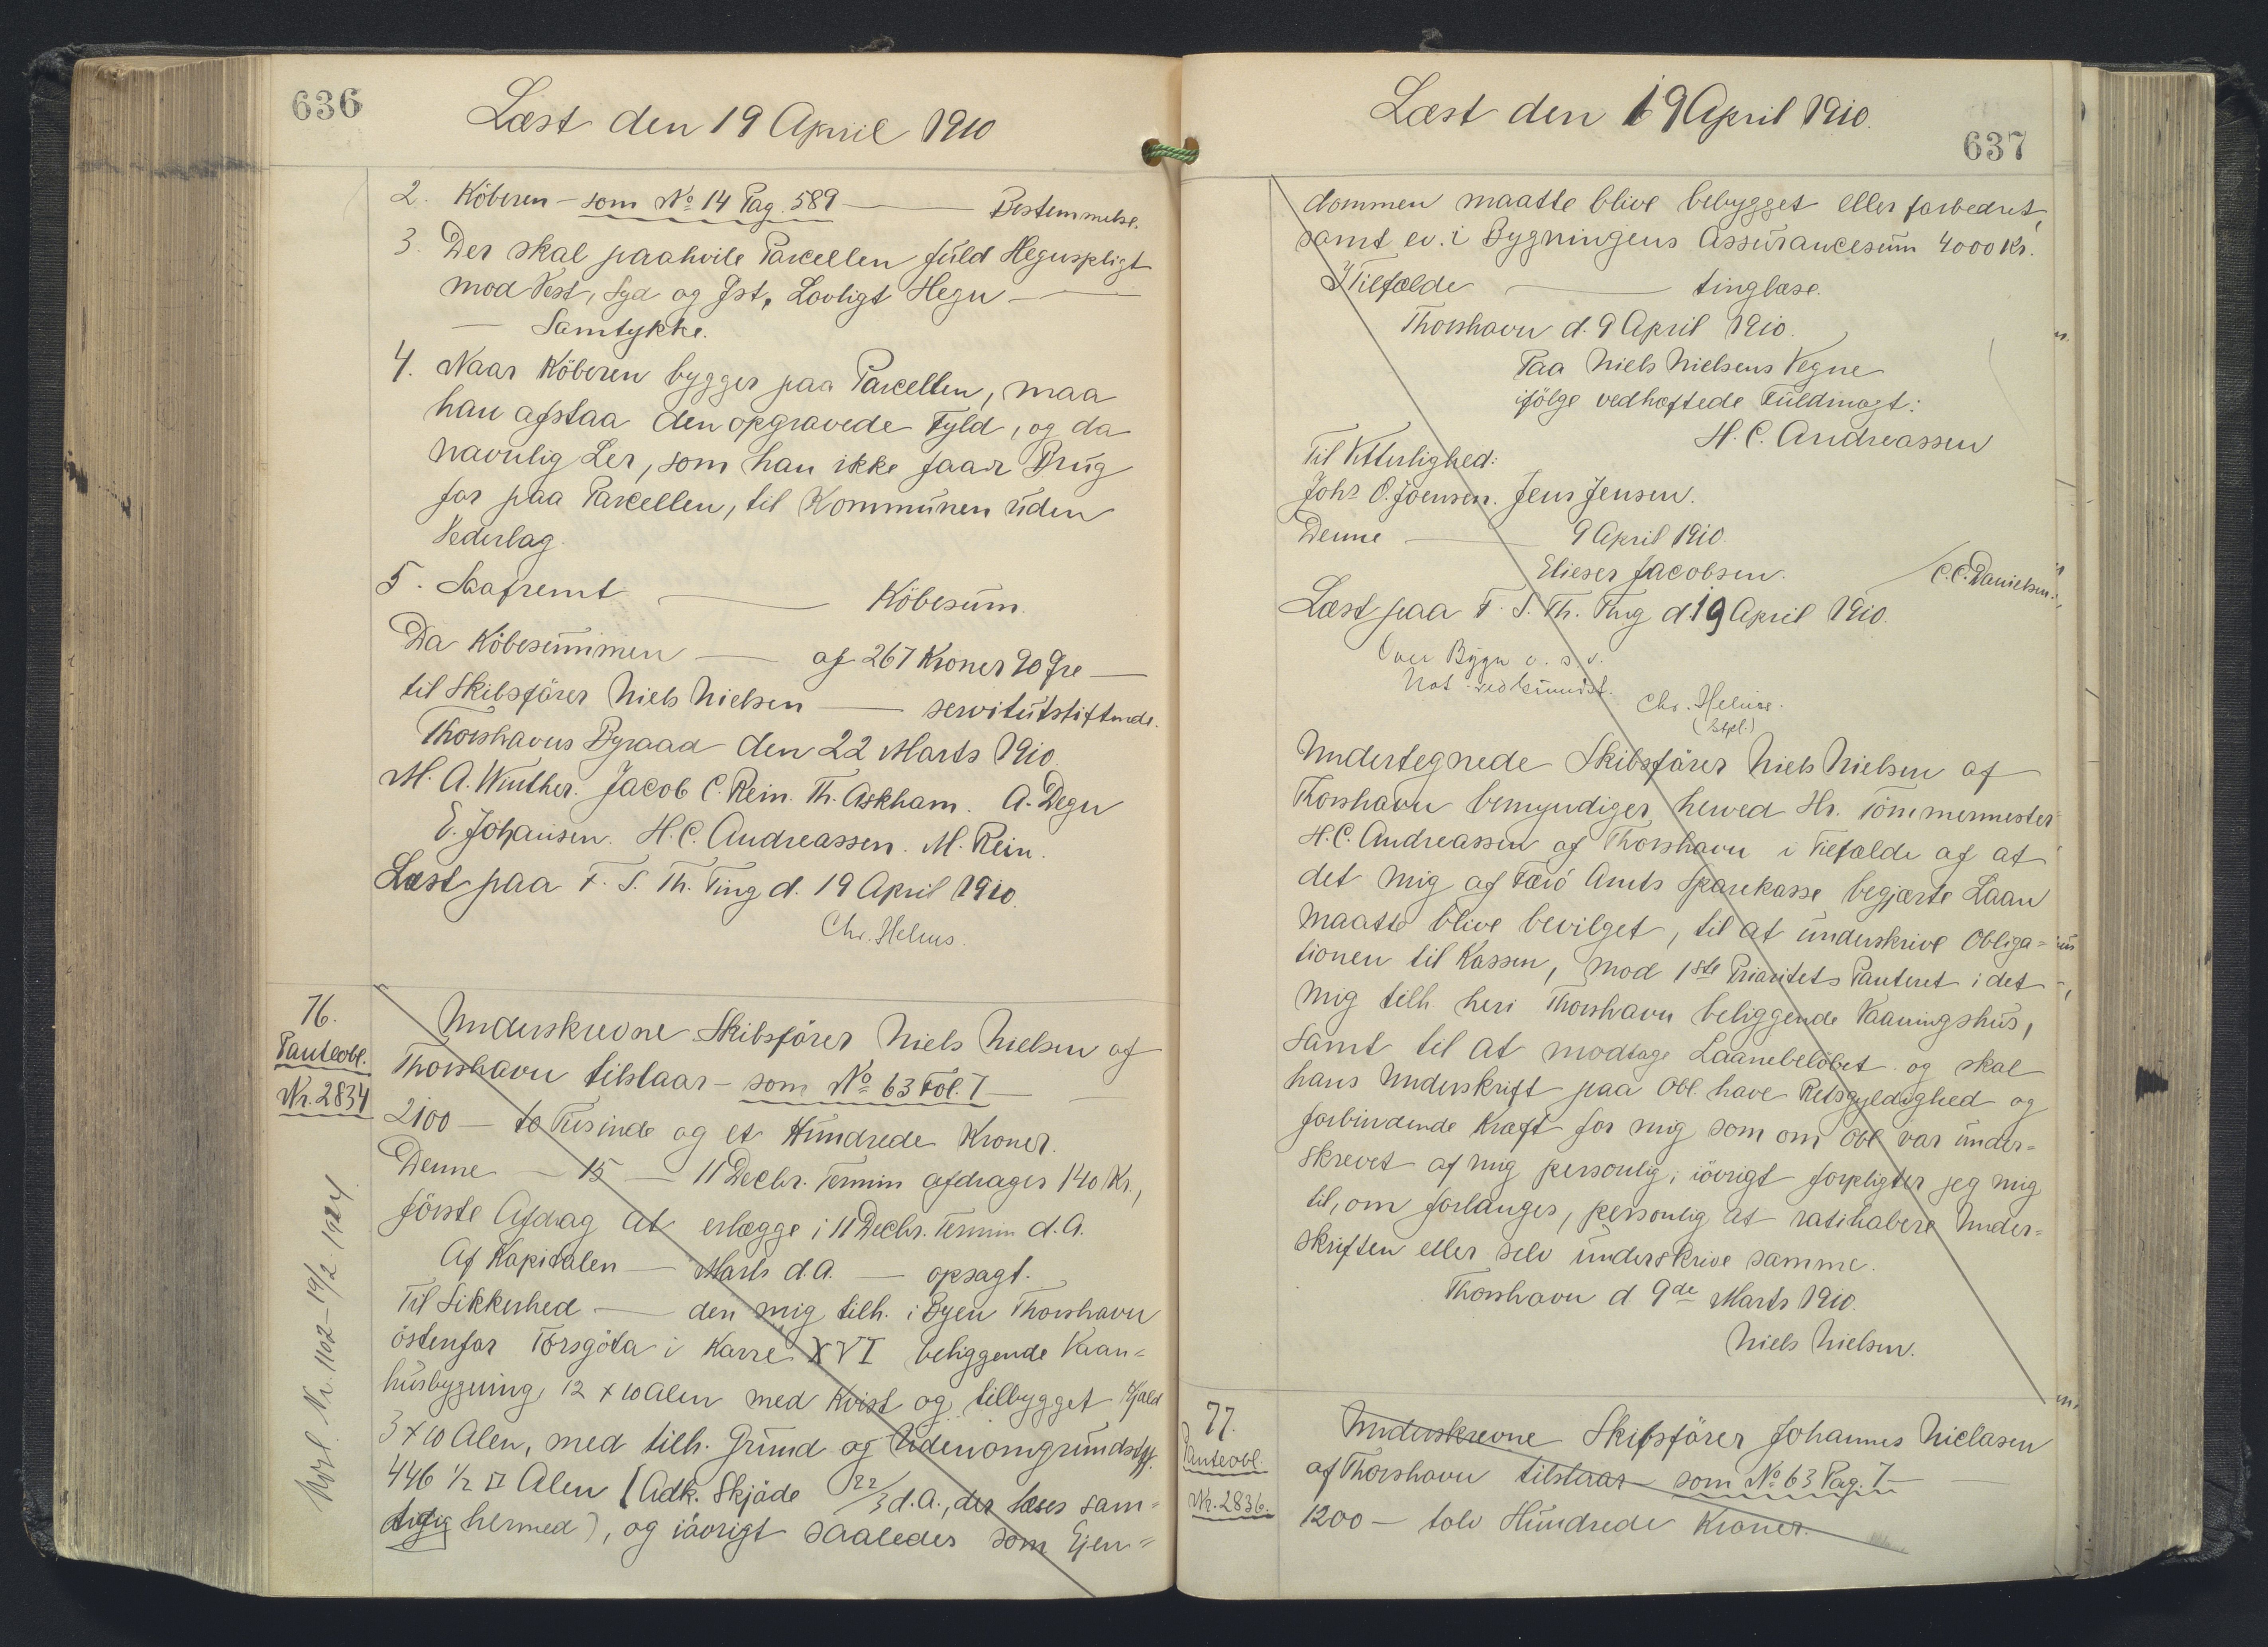 636
Læst den 19 April 1910
2. Köberen - som No 14 Pag. 589 — Bestemmelse.
3. Der skal paahvile Parcellen fuld Hegnspligt
mod Vest, Syd og Øst, Lovligt Hegn —
— Samtykke.
4. Naar Köberen bygger paa Parcellen, maa
han afstaa den opgravede Fyld, og da
navnlig Ler, som han ikke faar Brug
for paa Parcellen, til Kommunen uden
Vederlag.
5. Saafremt — Köbesum.
Da Köbesummen — af 267 Kroner 90 Øre —
til Skibsförer Niels Nielsen — servitutstiftende.
Thorshavns Byraad den 22 Marts 1910.
M. A. Winther. Jacob C. Rein. Th. Askham. A. Degn
E. Johansen. H. C. Andreassen. M. Rein.
Læst paa F. S. Th. Ting d. 19 April 1910.
Chr. Helms.
76.
Panteobl.
Nr. 2834
Underskrevne Skibsförer Niels Nielsen af
Thorshavn tilstaar - som No 63 Fol. 7 —
2100 — to Tusinde og et Hundrede Kroner.
Denne — 15 — 11 Decbr. Termin afdrages 140 Kr.,
förste Afdrag at erlægge i 11 Decbr. Termin d. A.
Af Kapitalen — Marts d.A. — opsagt.
Til Sikkerhed — den mig tilh. i Byen Thorshavn
östenfor Torsgöta i Karre XVI beliggende Vaan=
husbygning, 12 x 10 Alen med Kvist og tilbygget Hjald
3 x 10 Alen, med tilh. Grund og Udenomgrundstk.
446 ½ □ Alen (Adk. Skjöde 22/3 d. A., der læses sam=
tidig hermed), og iövrigt saaledes som Ejen=
Nr. 1102 - 19/2 1924.
Læst den 19 April 1910.
637
dommen maatte blive bebygget eller forbedret,
samt ev. i Bygningens Assurancesum 4000 Kr.
I Tilfælde — tinglæse.
Thorshavn d. 9 April 1910.
Paa Niels Nielsens Vegne
ifölge vedhæftede Fuldmagt:
H. C. Andreassen
Til Vitterlighed:
Johs O. Joensen. Jens Jensen.
Denne — 9 April 1910.
Elieser Jacobsen. / C. C. Danielsen.
Læst paa F. S. Th. Ting d. 19 April 1910.
Over Bygn o. s. v.
Chr. Helms.
(Stpl.)
Undertegnede Skibsförer Niels Nielsen af
Thorshavn bemyndiger herved Hr. Tömmermester
H. C. Andreassen af Thorshavn i Tilfælde af at
det mig af Færö Amts Sparekasse begjærte Laan
maatte blive bevilget, til at underskrive Obliga=
tionen til Kassen, mod 1ste Prioritets Panteret i det
mig tilh. heri Thorshavn beliggende Vaaningshus,
samt til at modtage Laanebelöbet og skal
hans Underskrift paa Obl. have Retsgyldighed og
forbindende Kraft for mig som om Obl. var under=
skrevet af mig personlig; iövrigt forpligter jeg mig
til, om forlanges, personlig at ratihabere Under=
skriften eller selv underskrive samme.
Thorshavn d 9de Marts 1910.
Niels Nielsen.
77.
Panteobl.
Nr. 2836.
Underskrevne Skibsförer Johannes Niclasen
af Thorshavn tilstaar som No 63 Pag. 7 —
1200 — tolv Hundrede Kroner.